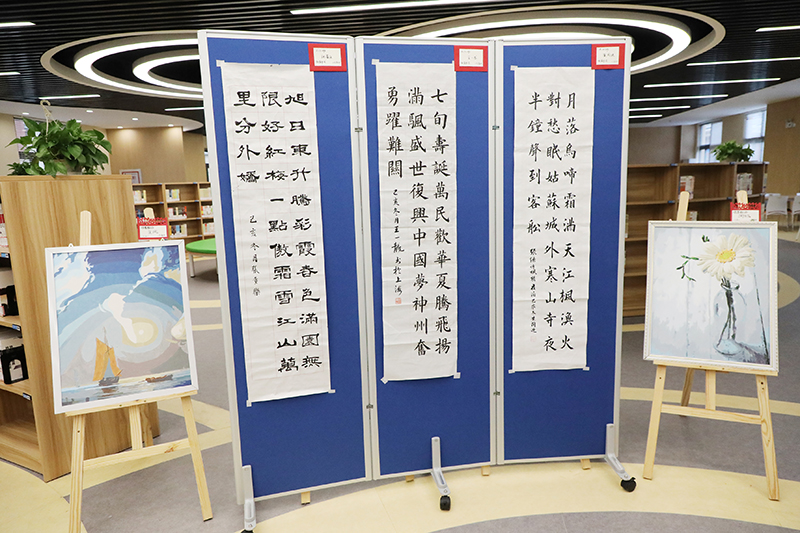 旭日東升騰彩霞春色滿園無
限好紅梅一點傲霜雪江山萬
里分外嬌
己亥冬月
七旬壽誕萬民歡華夏騰飛揚
滿飄盛世復興中國夢神州奮
勇躍難關
己亥冬月王一龍書於上海
月落烏啼霜滿天江楓漁火
對愁眠姑蘇城外寒山寺夜
半鐘聲到客船